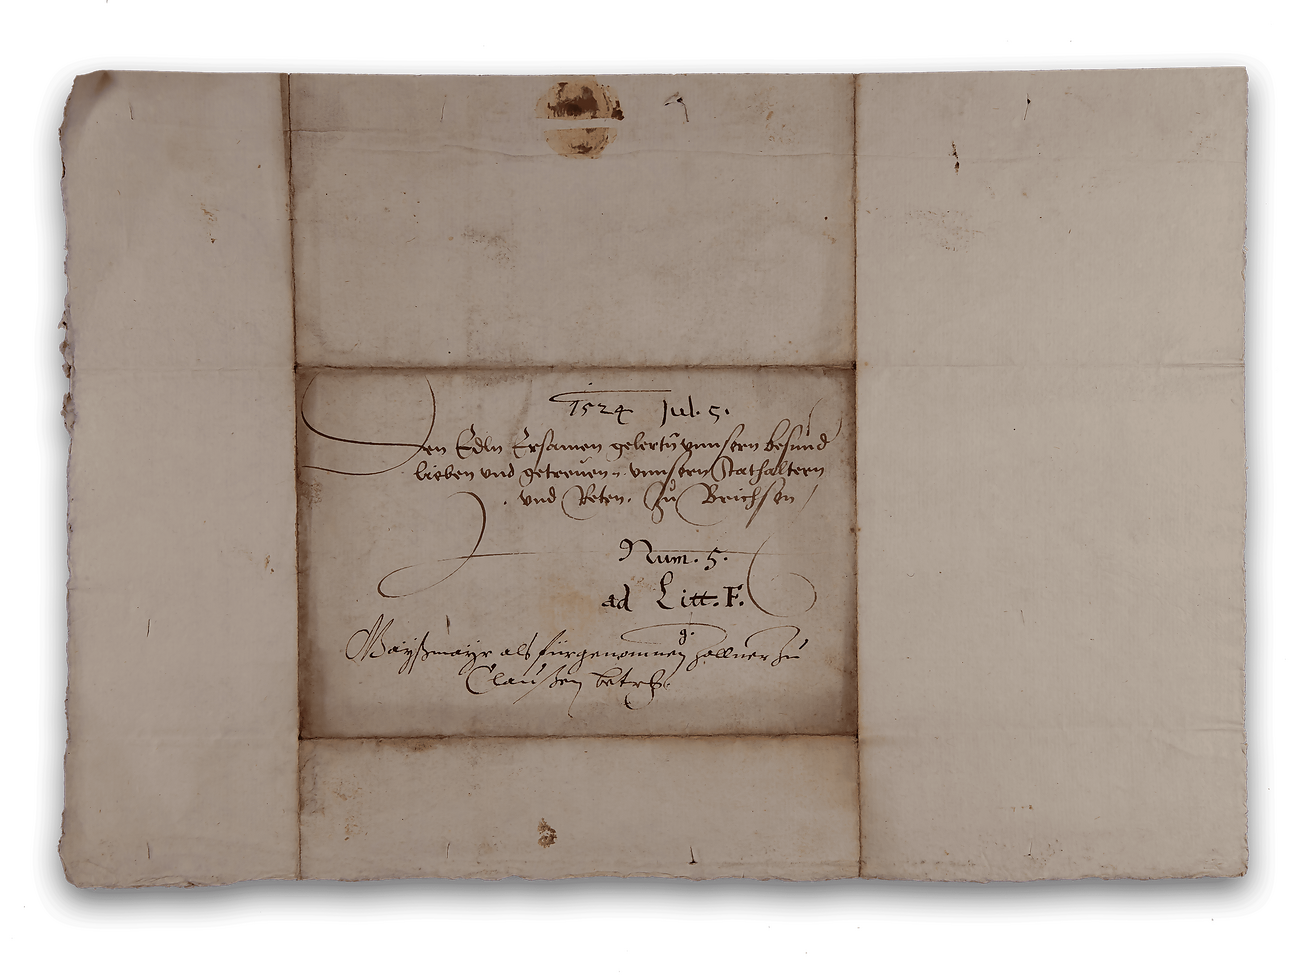 1524 Jul. 5.
Den Edln Ersamen gelertn unnsern besund
lieben und getreuen unnsern Stathaltern
und Reten. Zu Brichsen
Num. 5.
ad Litt. F.
9.
Mayßmayr als fürgenomnen zollner zu
Clausen betrf.